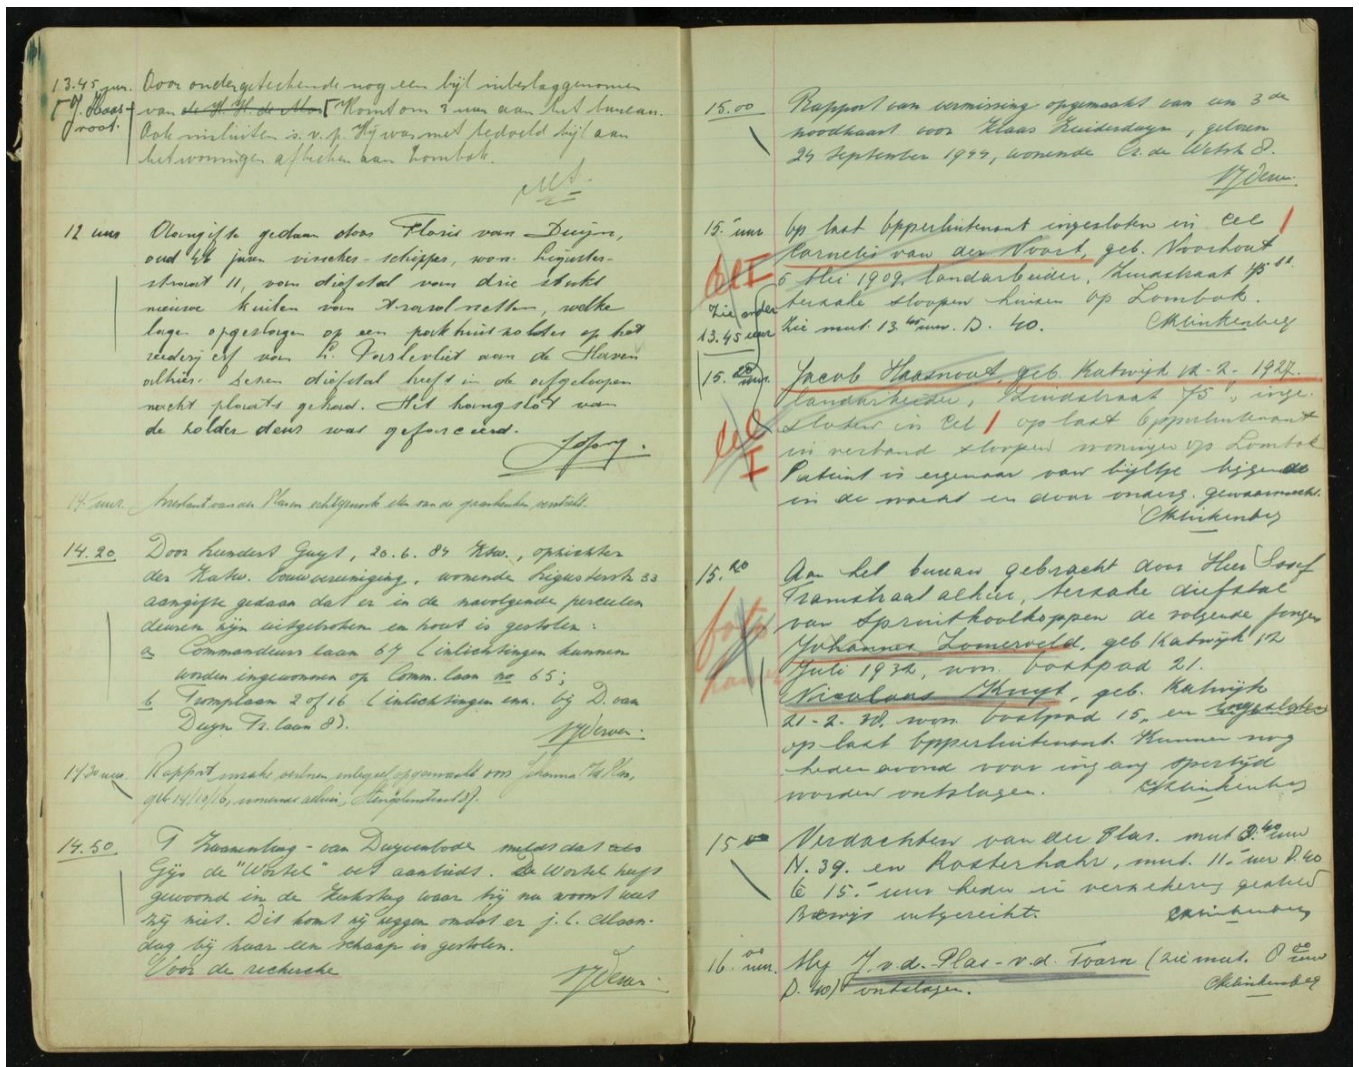 13.45 uur. Door ondergeteekende nog een bijl inbeslaggenomen
J. Haas- van de H. H. de Komt om 3 uur aan het bureau.
noot. Ook insluiten s.v.p. Hij was met bedoeld bijl aan
het woningen afbreken aan Lombok.
12 uur Aangifte gedaan door Floris van Duijn,
oud 46 jaren visscher-schipper, won. Liguster-
straat 11, van diefstal van drie stuks
nieuwe kuilen van trawlnetten, welke
lagen opgeslagen op een pakhuiszolder op het
rederij erf van L. Parlevliet aan de Haven
alhier. Dezen diefstal heeft in de afgeloopen
nacht plaats gehad. Het hangslot van
de zolder deur was geforceerd.
14 uur. van der Plas en
14.20 Door Leendert Guyt, 20.6.84 Ktw., opzichter
der Katw. bouwvereeniging, wonende Ligusterstr 33
aangifte gedaan dat er in de navolgende perceelen
deuren zijn uitgebroken en hout is gestolen:
a Commandeurslaan 67 (inlichtingen kunnen
worden ingewonnen op Comm. laan no. 65;
b Tromplaan 2 of 16 (inlichtingen enn. bij D. van
Duyn Tr. laan 8).
14.30 uur Rapport inzake verloren opgemaakt voor Johanna v.d. Plas,
geb 14/10/16, wonende alhier,
14.50 T Zwanenburg - van Duyvenbode meldt dat
Gijs de "Wortel" vet aanbiedt. De Wortel heeft
gewoond in de Kerksteg waar hij nu woont weet
zij niet. Dit komt zij zeggen omdat er j.l. Maan-
dag bij haar een schaap is gestolen.
Voor de recherche
15.00 Rapport van vermissing opgemaakt van een 3de
noodkaart voor Klaas Zuiderduyn, geboren
24 September 1944, wonende Cr. de Wetstr 8.
15.- uur op last Opperluitenant ingesloten in Cel 1
Cornelis van der Noort, geb. Noorhout
Cel I 5 Mei 1909, landarbeider, Zuidstraat 75
Zie onder terzake sloopen huizen op Lombok.
13.45 uur Zie mut. 13.45 uur. D. 40. CKlinkenberg
15.20 uur. Jacob Haasnoot, geb. Katwijk 12-2-1927.
landarbeider, Zuidstraat 75, inge-
Cel I sloten in Cel 1 op last Opperluitenant
in verband sloopen woningen op Lombok
Patient is eigenaar van bijltje liggende
in de wacht en door onderg. gewaarmerkt.
CKlinkenberg
15.20 Aan het bureau gebracht door Heer
Tramstraat alhier, terzake diefstal
foto van Spruitkoolkoppen de volgende jongens
Johannes Zomerveld, geb Katwijk 12
Juli 1932, won. Oostpad 21.
Nicolaas Kuyt, geb. Katwijk
21-2-30, won. Oostpad 15, en ingesloten
op last Opperluitenant. Kunnen nog
heden avond voor ingang spertijd
worden ontslagen. CKlinkenberg
15 Verdachten van der Plas. mut 3.40 uur
N. 39. en Rosterhahr, mut. 11.- uur D.40
te 15.- uur heden in verzekering gesteld
Bewijs uitgereikt. CKlinkenberg
16.00 uur. Mej J. v.d. Plas - v.d. Toorn (zie mut. 8.00 uur
D. 40) ontslagen. CKlinkenberg